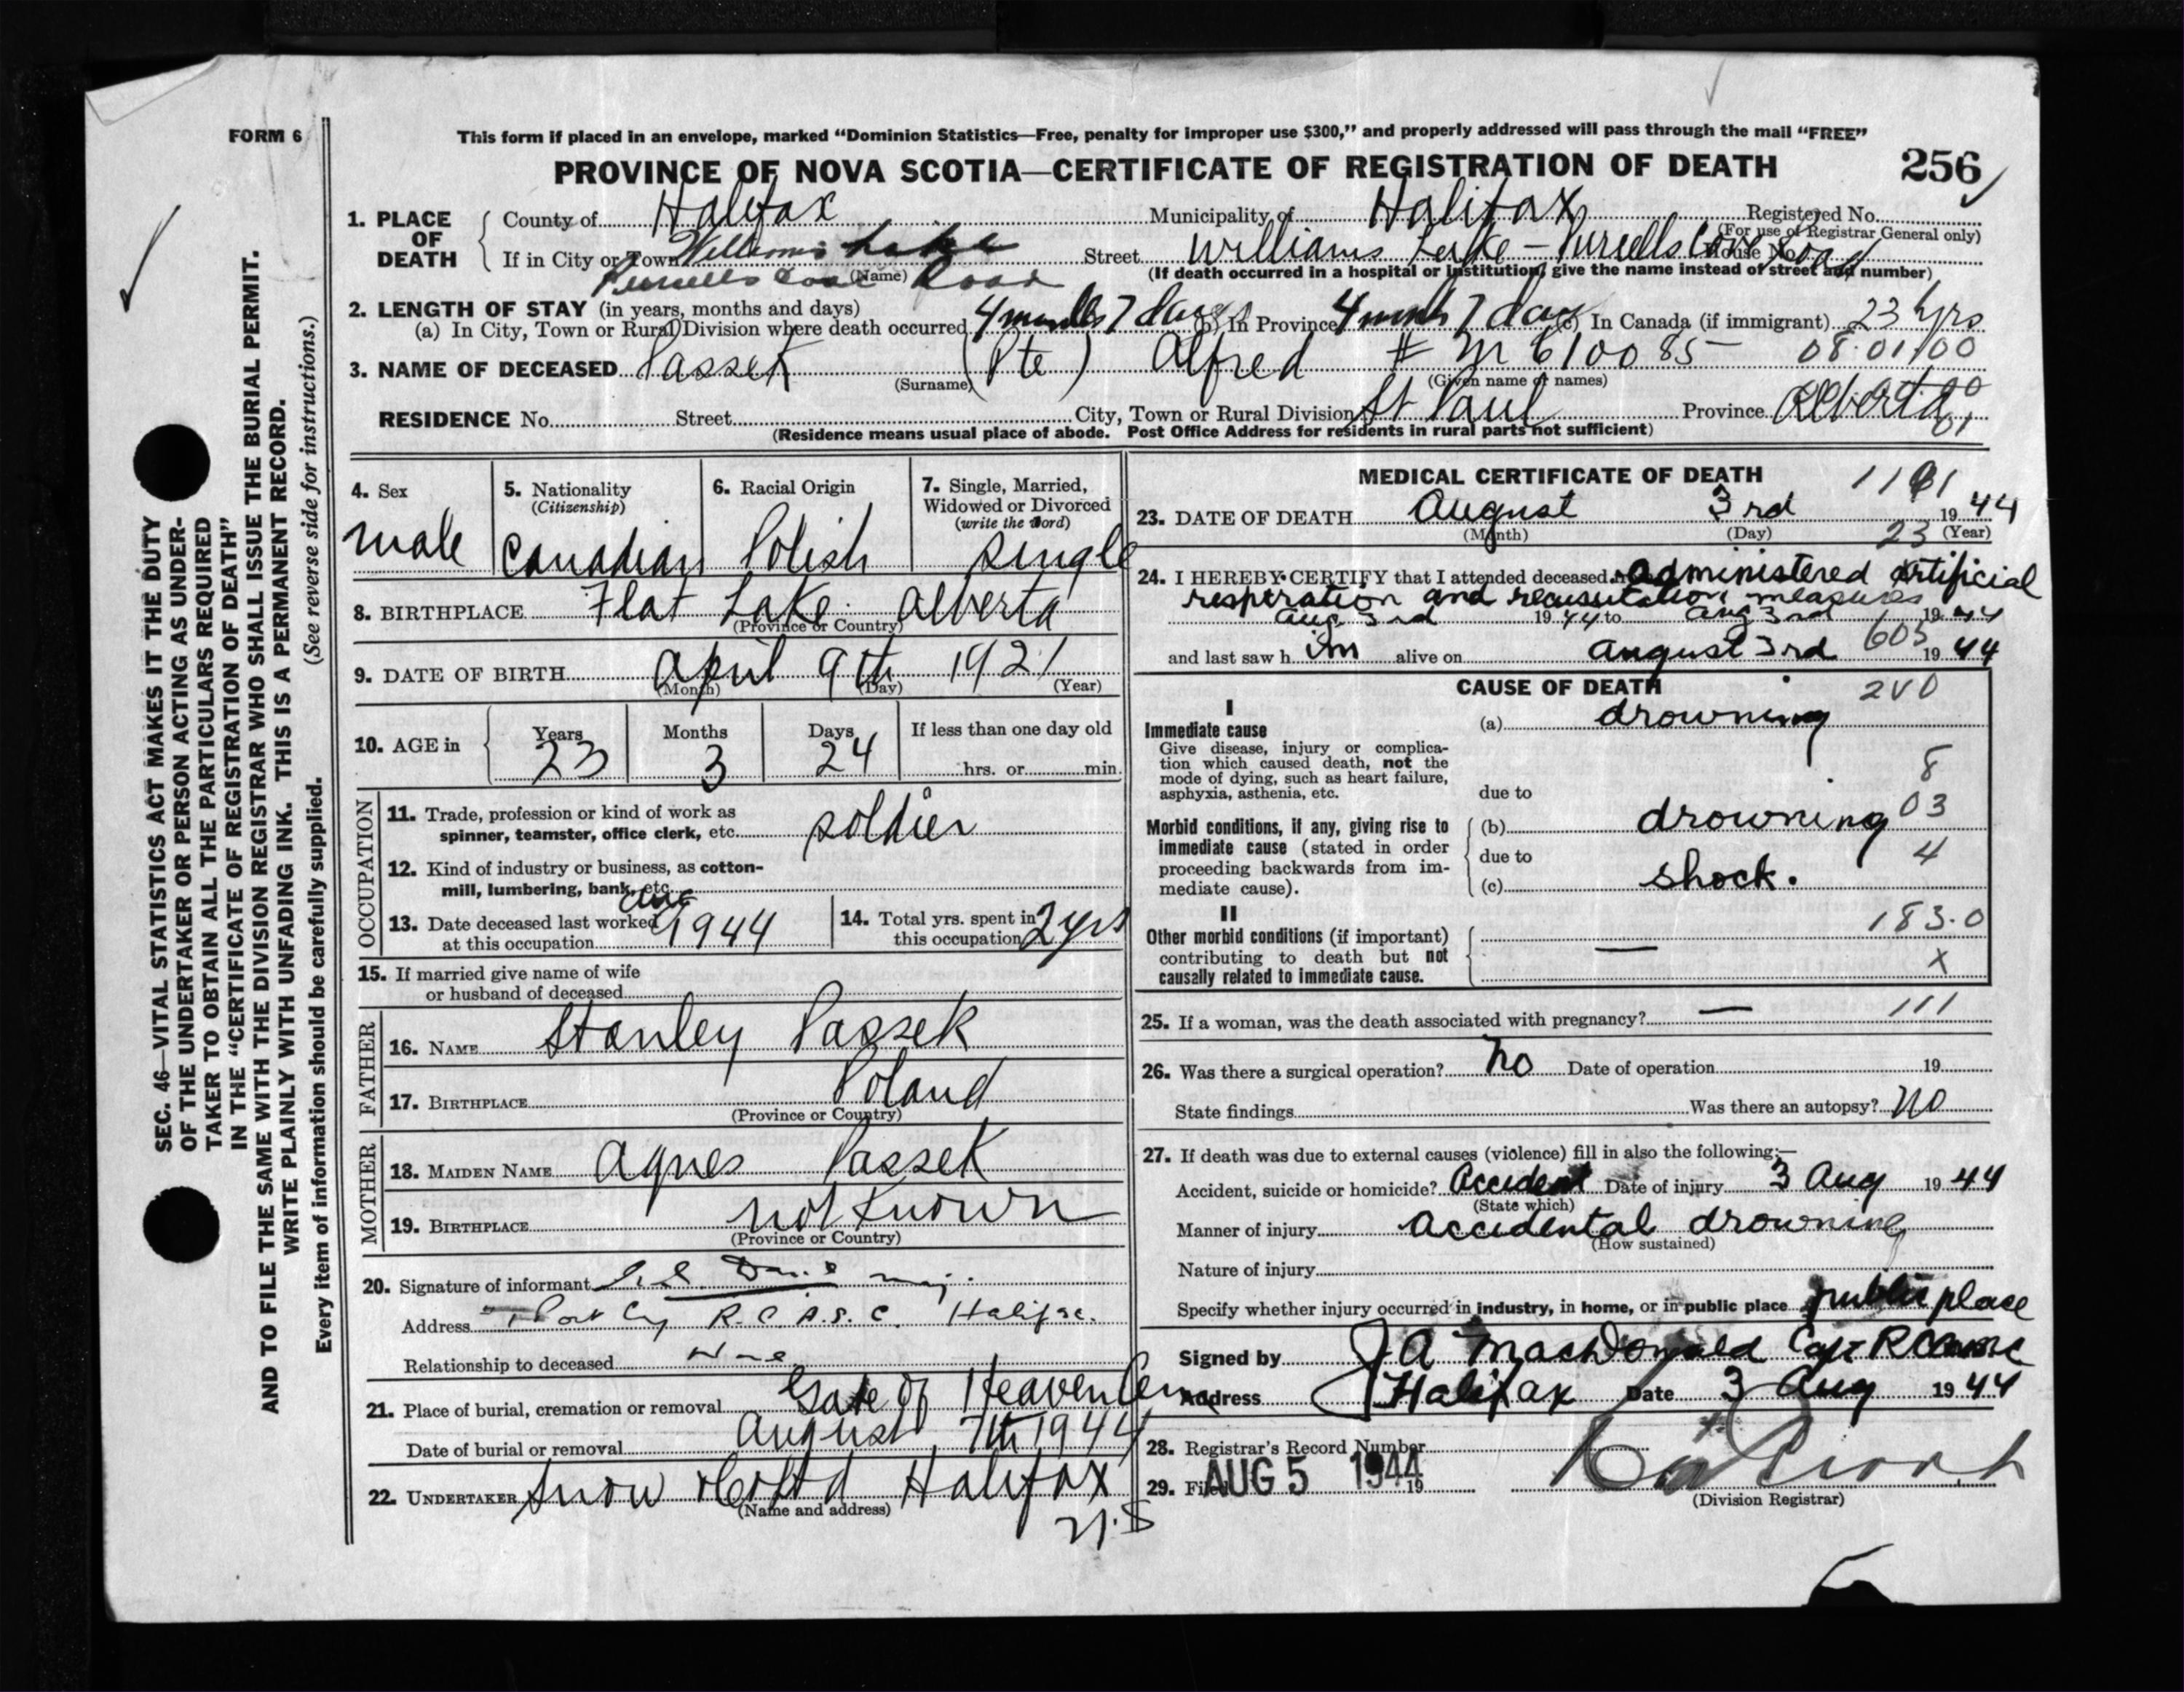 FORM 6
This form if placed in an envelope, marked “Dominion Statistics—Free, penalty for improper use $300,” and properly addressed will pass through the mail “FREE”
PROVINCE OF NOVA SCOTIA—CERTIFICATE OF REGISTRATION OF DEATH 256
SEC. 46—VITAL STATISTICS ACT MAKES IT THE DUTY
OF THE UNDERTAKER OR PERSON ACTING AS UNDER-
TAKER TO OBTAIN ALL THE PARTICULARS REQUIRED
IN THE “CERTIFICATE OF REGISTRATION OF DEATH”
AND TO FILE THE SAME WITH THE DIVISION REGISTRAR WHO SHALL ISSUE THE BURIAL PERMIT.
WRITE PLAINLY WITH UNFADING INK. THIS IS A PERMANENT RECORD.
Every item of information should be carefully supplied. (See reverse side for instructions.)
1. PLACE OF DEATH County of Halifax Municipality of Halifax Registered No.
(For use of Registrar General only)
If in City or Town Williams Lake Street Williams Lake - Purcells Cove Road House No.
Purcells Cove Road (Name) (If death occurred in a hospital or institution, give the name instead of street and number)
2. LENGTH OF STAY (in years, months and days)
(a) In City, Town or Rural Division where death occurred 4 months 7 days (b) In Province 4 month 7 days (c) In Canada (if immigrant) 23 yrs
3. NAME OF DECEASED Passek (Pte) Alfred # M 610085 08.01.00
(Surname) (Given name or names)
RESIDENCE No. Street City, Town or Rural Division St Paul Province Alberta 00 01
(Residence means usual place of abode. Post Office Address for residents in rural parts not sufficient)
4. Sex male
5. Nationality (Citizenship) Canadian
6. Racial Origin Polish
7. Single, Married, Widowed or Divorced (write the word) single
8. BIRTHPLACE Flat Lake Alberta
(Province or Country)
9. DATE OF BIRTH April 9th 1921
(Month) (Day) (Year)
10. AGE in Years 23 Months 3 Days 24 If less than one day old hrs. or min.
OCCUPATION
11. Trade, profession or kind of work as
spinner, teamster, office clerk, etc. soldier
12. Kind of industry or business, as cotton-
mill, lumbering, bank, etc.
13. Date deceased last worked at this occupation Aug 1944
14. Total yrs. spent in this occupation 2 yrs
15. If married give name of wife
or husband of deceased
FATHER
16. NAME Stanley Passek
17. BIRTHPLACE Poland
(Province or Country)
MOTHER
18. MAIDEN NAME Agnes Passek
19. BIRTHPLACE not known
(Province or Country)
20. Signature of informant
Address R.C.A.S.C. Halifax.
Relationship to deceased
21. Place of burial, cremation or removal Gate of Heaven Cem
Date of burial or removal August 7th 1944
22. UNDERTAKER Snow & Co Ltd Halifax
(Name and address) N.S
MEDICAL CERTIFICATE OF DEATH
23. DATE OF DEATH August 3rd 1944
(Month) (Day) 23 (Year)
24. I HEREBY CERTIFY that I attended deceased administered artificial
respiration and recussitation measures
Aug 3rd 1944 to Aug 3rd 1944
and last saw him alive on August 3rd 605 1944
CAUSE OF DEATH 240
I
Immediate cause (a) drowning
Give disease, injury or complica-
tion which caused death, not the
mode of dying, such as heart failure,
asphyxia, asthenia, etc. due to 8
Morbid conditions, if any, giving rise to (b) drowning 03
immediate cause (stated in order due to 4
proceeding backwards from im-
mediate cause). (c) shock.
II 183.0
Other morbid conditions (if important) —
contributing to death but not X
causally related to immediate cause.
25. If a woman, was the death associated with pregnancy? — 111
26. Was there a surgical operation? no Date of operation 19
State findings Was there an autopsy? no
27. If death was due to external causes (violence) fill in also the following:—
Accident, suicide or homicide? Accident Date of injury 3 Aug 1944
(State which)
Manner of injury accidental drowning
(How sustained)
Nature of injury
Specify whether injury occurred in industry, in home, or in public place public place
Signed by J A MacDonald Capt RCAMC
Address Halifax Date 3 Aug 1944
28. Registrar's Record Number
29. Filed AUG 5 1944 19
(Division Registrar)